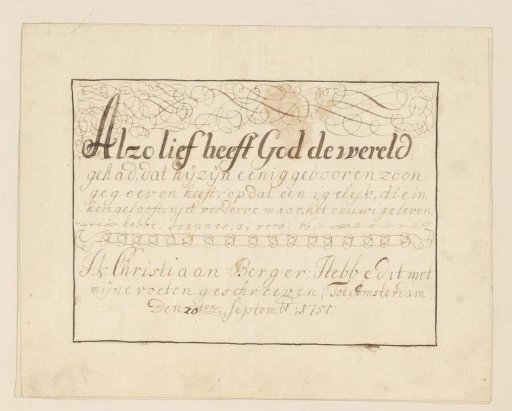 Alzo lief heeft God de wereld
gehad, dat hy zyn eeniggebooren zoon
gegeeven heeft, opdat een igelyk, die in
hem gelooft, niet verderve maar, het eeuwige leven
hebbe Joannes, 3; vers: 16.
Ik Christiaan Berger, Hebbe dit met
mijne voeten geschreeven; Tot Amsterdam
Den 20sten, Septembr; 1751.